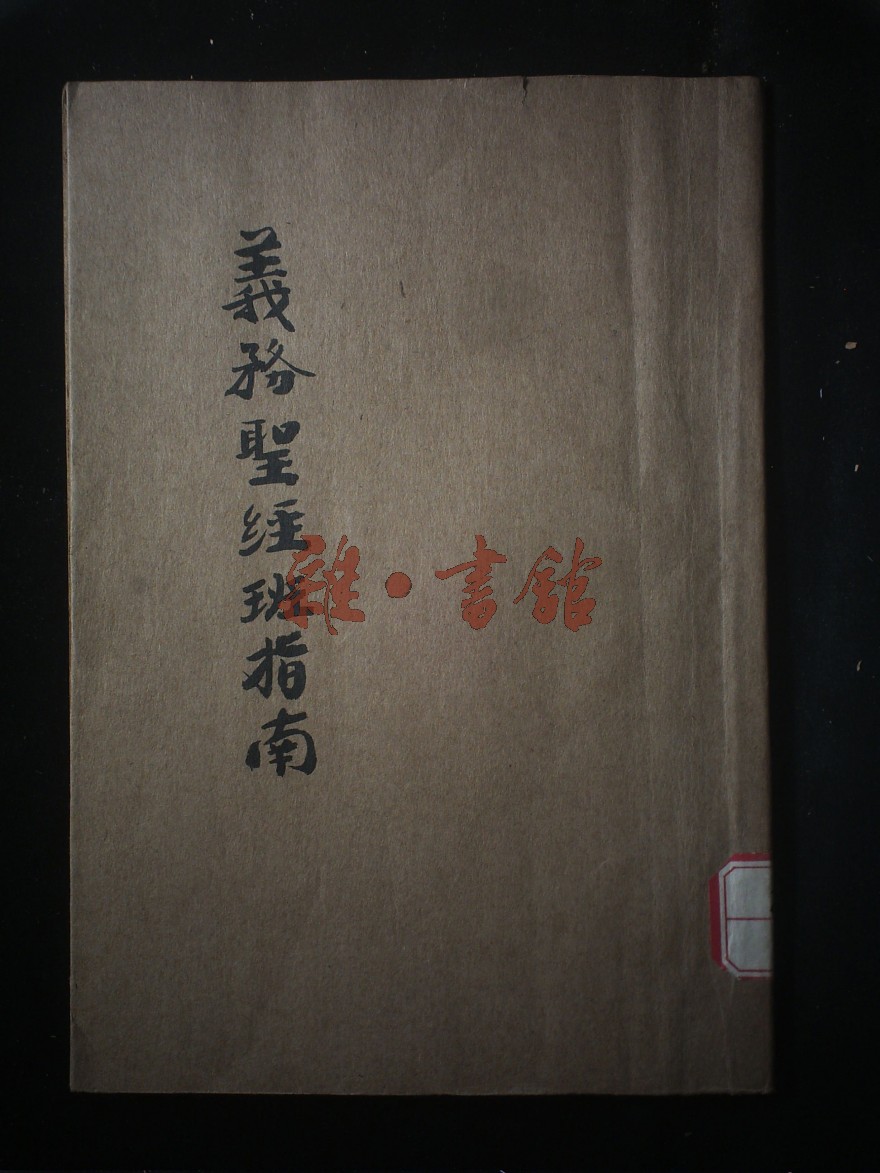 義務聖經班指南
雜·書館